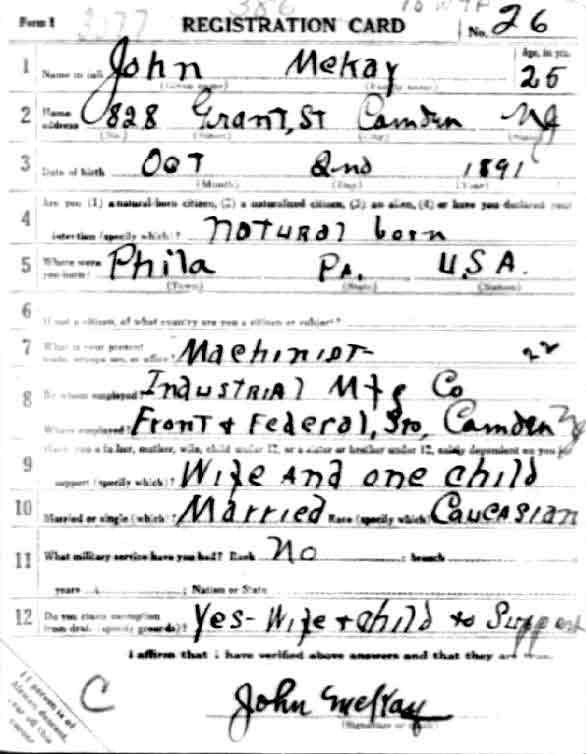 Form 1 3077 386 REGISTRATION CARD No. 26
1 Name in full John McKay Age, in yrs. 25
(Given name) (Family name)
2 Home address 828 Grant, St Camden NJ
(No.) (Street) (City) (State)
3 Date of birth Oct 2nd 1891
(Month) (Day) (Year)
Are you (1) a natural-born citizen, (2) a naturalized citizen, (3) an alien, (4) or have you declared your
4 intention (specify which)? Natural born
5 Where were you born? Phila Pa. U.S.A.
(Town) (State) (Nation)
6 If not a citizen, of what country are you a citizen or subject?
7 What is your present trade, occupation, or office? Machinist 22
8 By whom employed? Industrial Mfg Co
Where employed? Front & Federal, Sts, Camden NJ
Have you a father, mother, wife, child under 12, or a sister or brother under 12, solely dependent on you for
9 support (specify which)? Wife and one child
10 Married or single (which)? Married Race (specify which)? Caucasian
11 What military service have you had? Rank No ; branch
years ; Nation or State
12 Do you claim exemption from draft (specify grounds)? Yes - Wife & child to Support
I affirm that I have verified above answers and that they are true.
If person is of African descent, tear off this corner
C
John McKay
(Signature or mark)